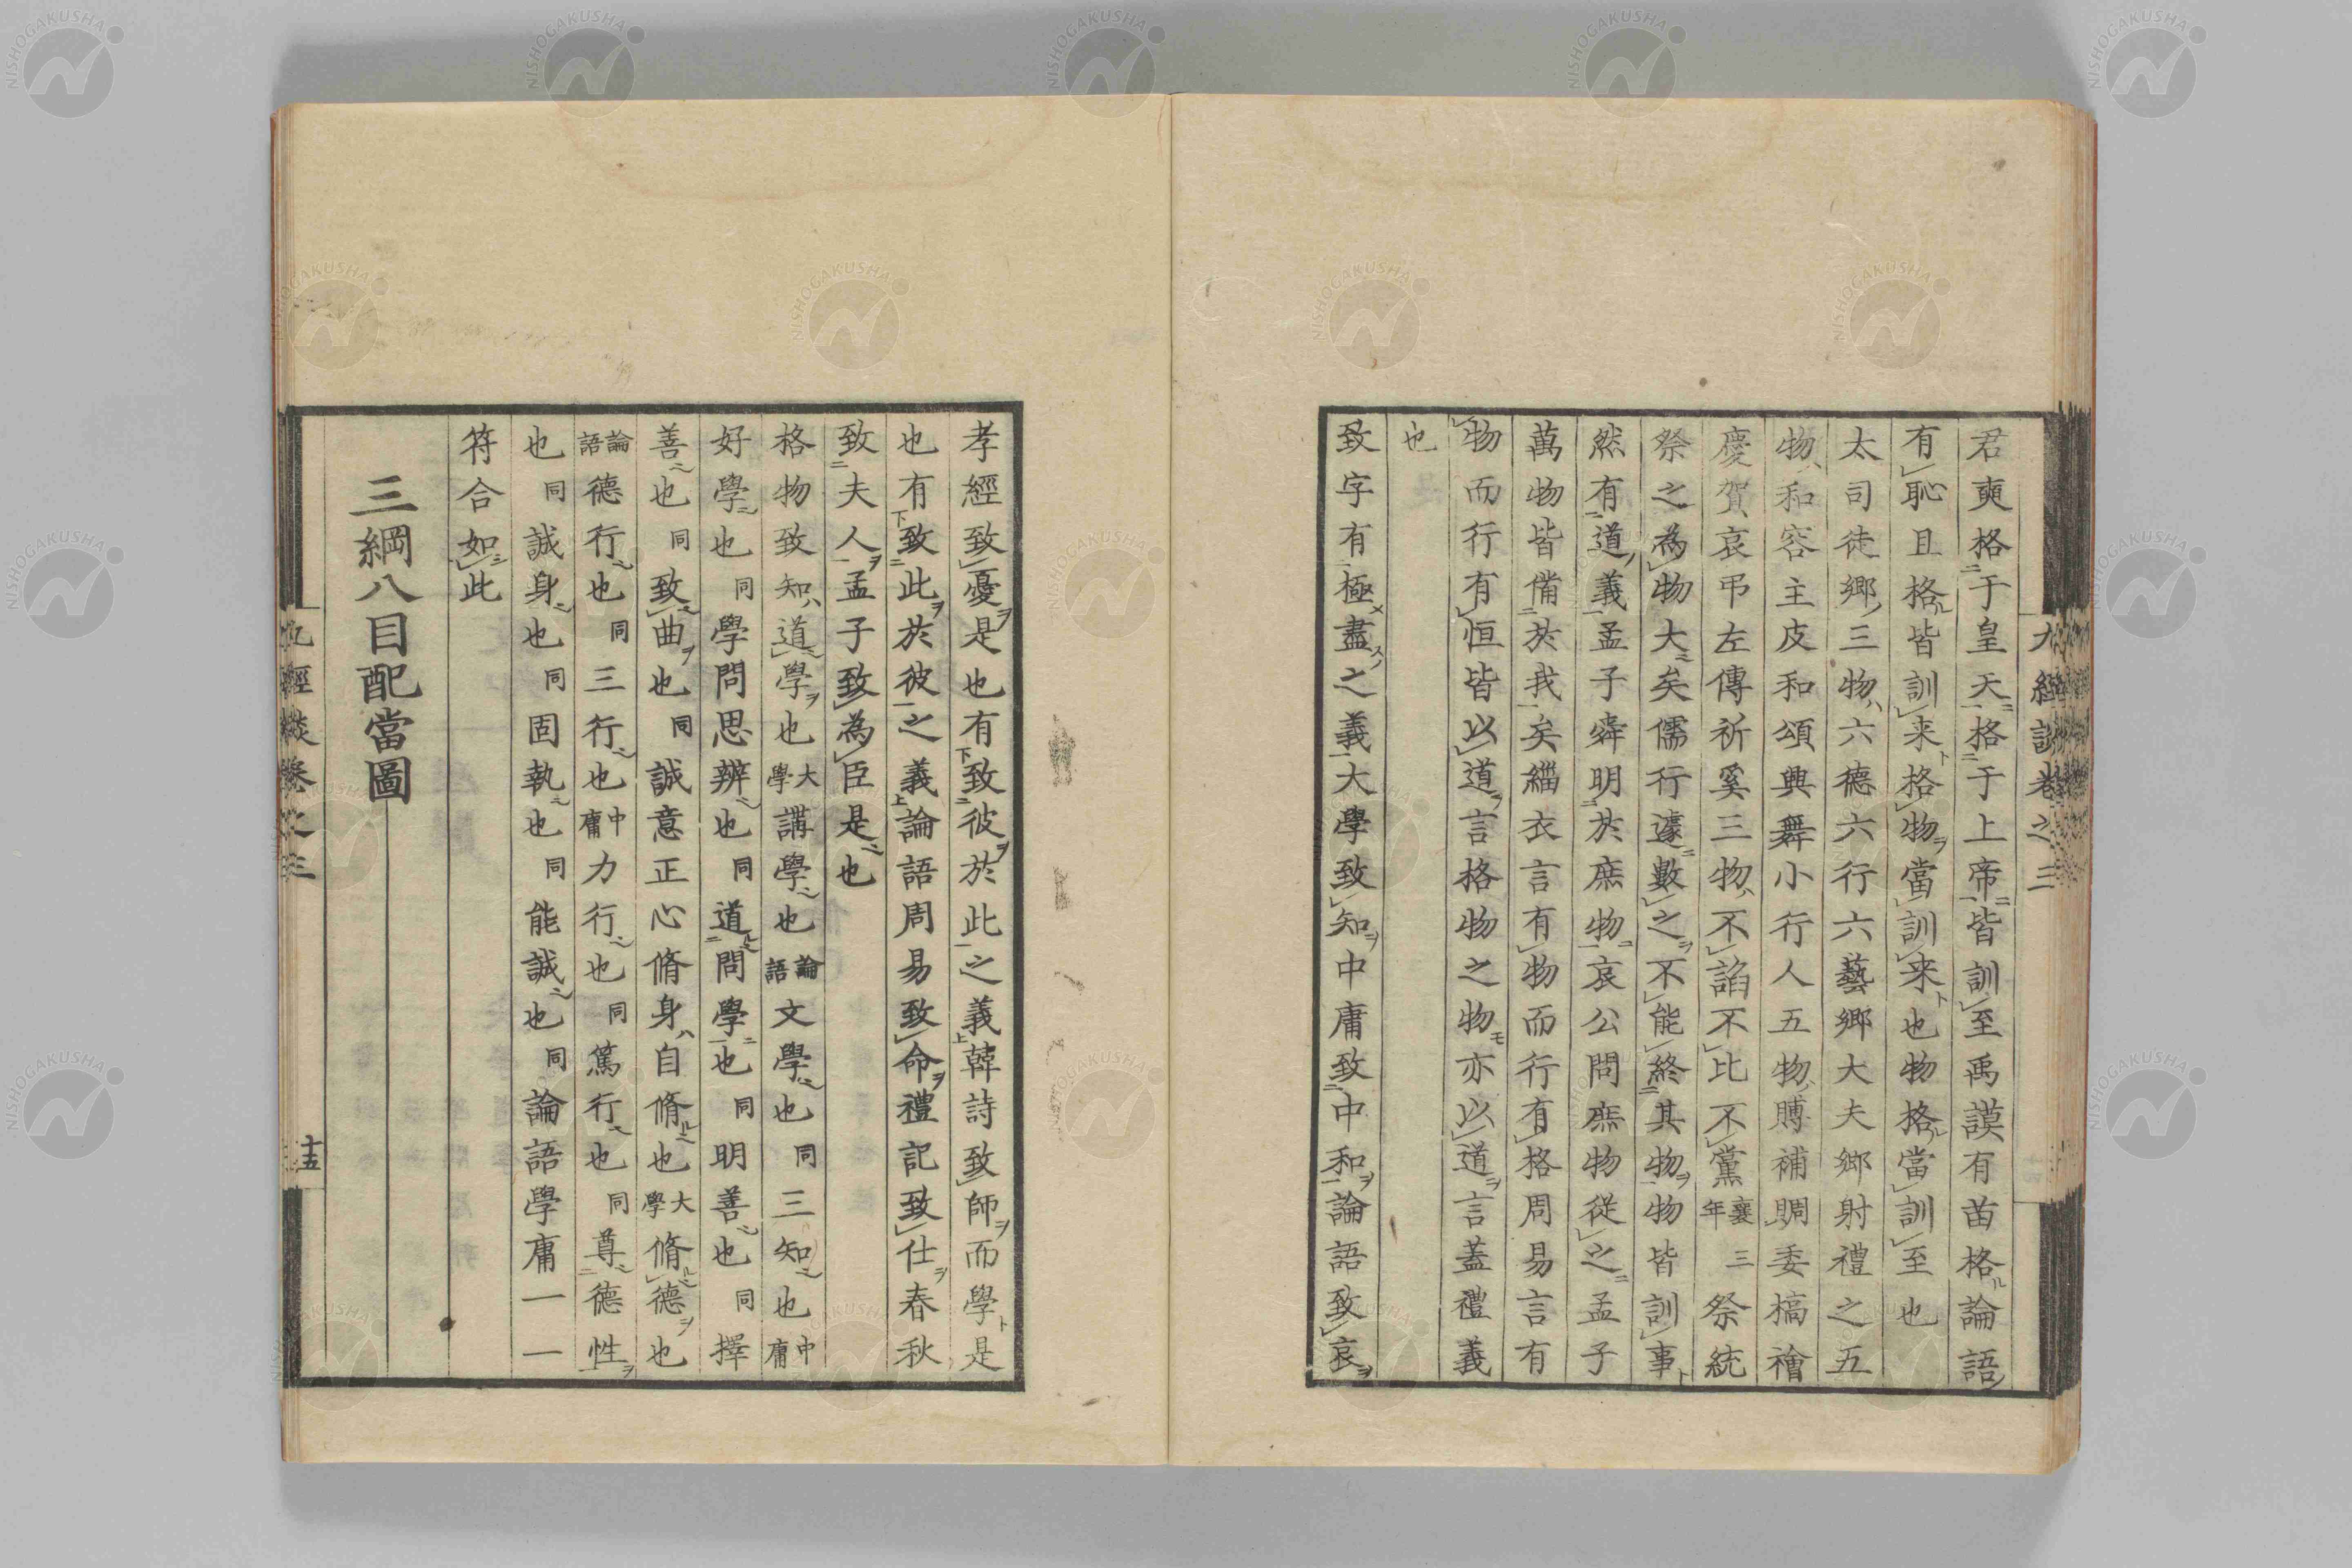 君奭格于皇天格于上帝皆訓至禹謨有苗格論語
有恥且格皆訓来格物當訓来也物格當訓至也
太司徒鄉三物六德六行六藝鄉大夫鄉射禮之五
物和容主皮和頌興舞小行人五物賻補賙委槁禬
慶賀哀弔左傳祈奚三物不諂不比不黨襄三年祭統
祭之為物大矣儒行遽數之不能終其物物皆訓事
然有道義孟子舜明於庶物哀公問庶物從之孟子
萬物皆備於我矣緇衣言有物而行有格周易言有
物而行有恒皆以道言格物之物亦以道言蓋禮義
也
致字有極盡之義大學致知中庸致中和論語致哀
孝經致憂是也有致彼於此之義韓詩致師而學是
也有致此於彼之義論語周易致命禮記致仕春秋
致夫人孟子致為臣是也
格物致知道學也大學講學也論語文學也同三知也中庸
好學也同學問思辨也同道問學也同明善也同擇
善也同致曲也同誠意正心脩身自脩也大學脩德也
論語德行也同三行也中庸力行也同篤行也同尊德性
也同誠身也同固執也同能誠也同論語學庸一一
符合如此
三綱八目配當圖
卷之三
十五